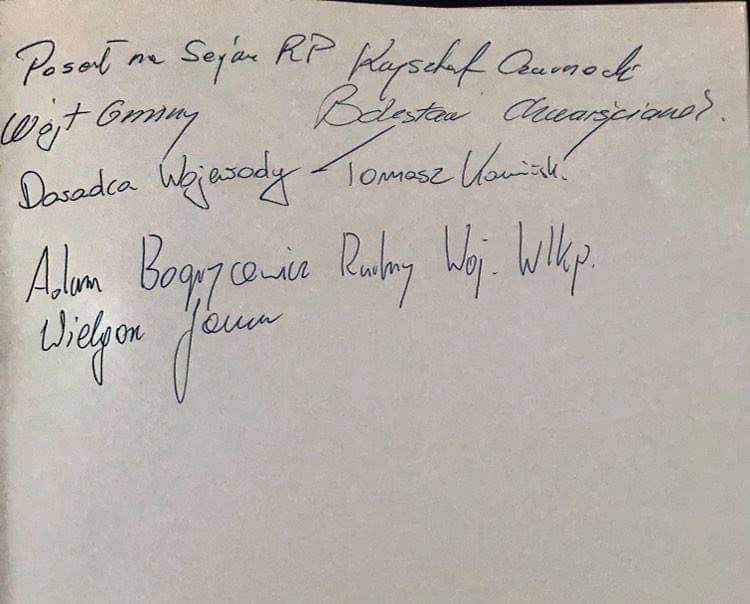 Poseł na Sejm RP Krzysztof Czarnecki
Wójt Gminy Bolesław Chwarścianek
Doradca Wojewody - Tomasz Kamiński
Adam Bogrycewicz Radny Woj. Wlkp.
Wielgosz Janusz